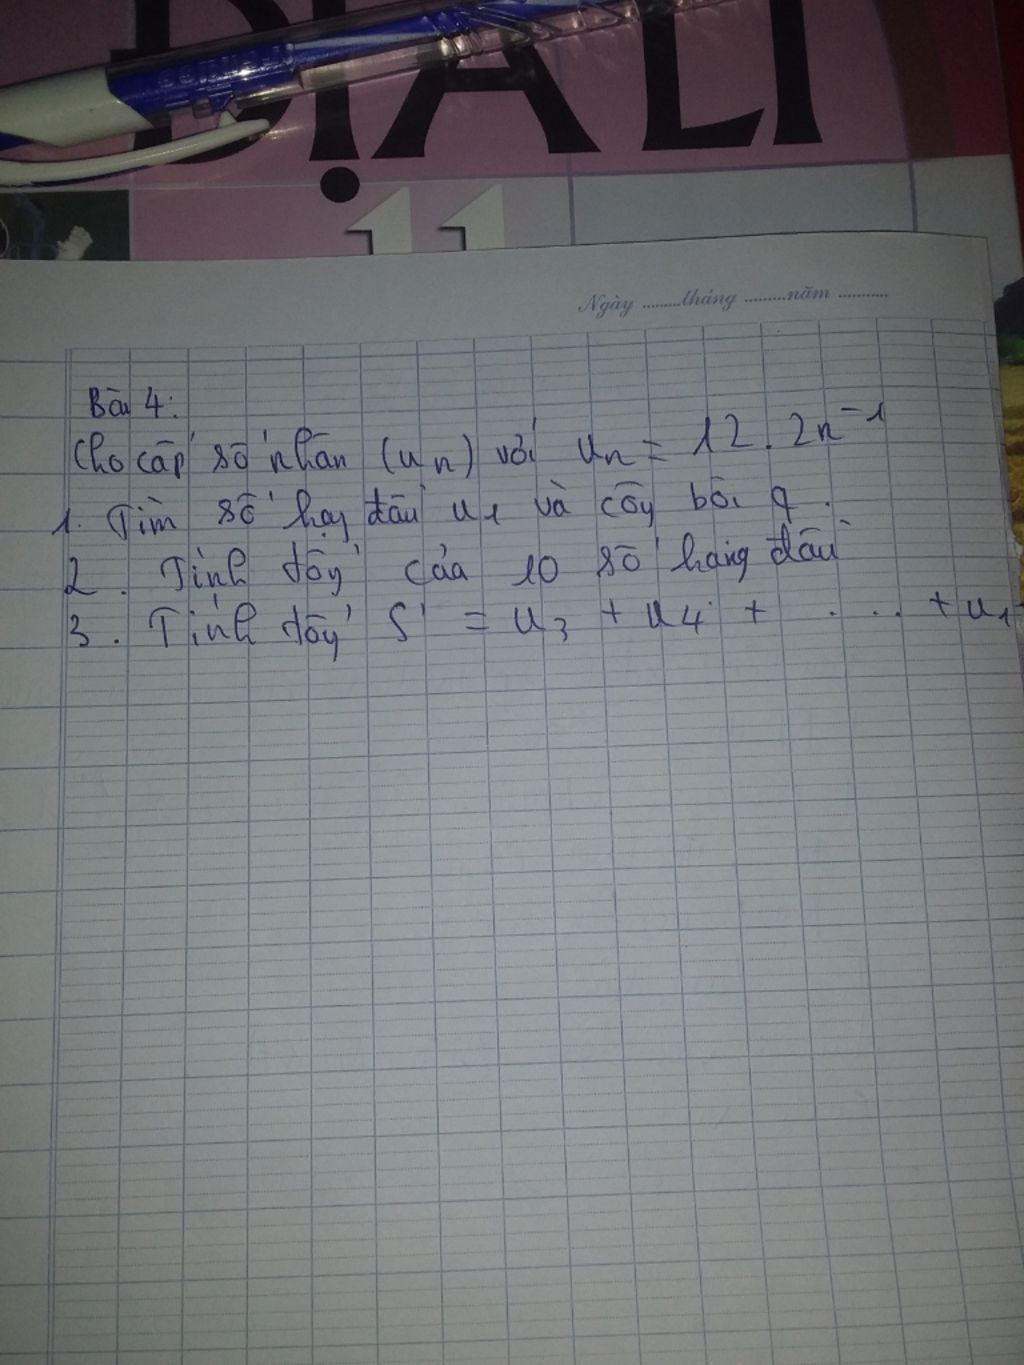 ĐỊA LÍ
11
Ngày .........tháng .........năm ...........
Bài 4:
Cho cấp số nhân (un) với un = 12. 2n⁻¹
1. Tìm số hạng đầu u1 và công bội q.
2. Tính tổng của 10 số hạng đầu
3. Tính tổng S' = u3 + u4 + . . . . + u1